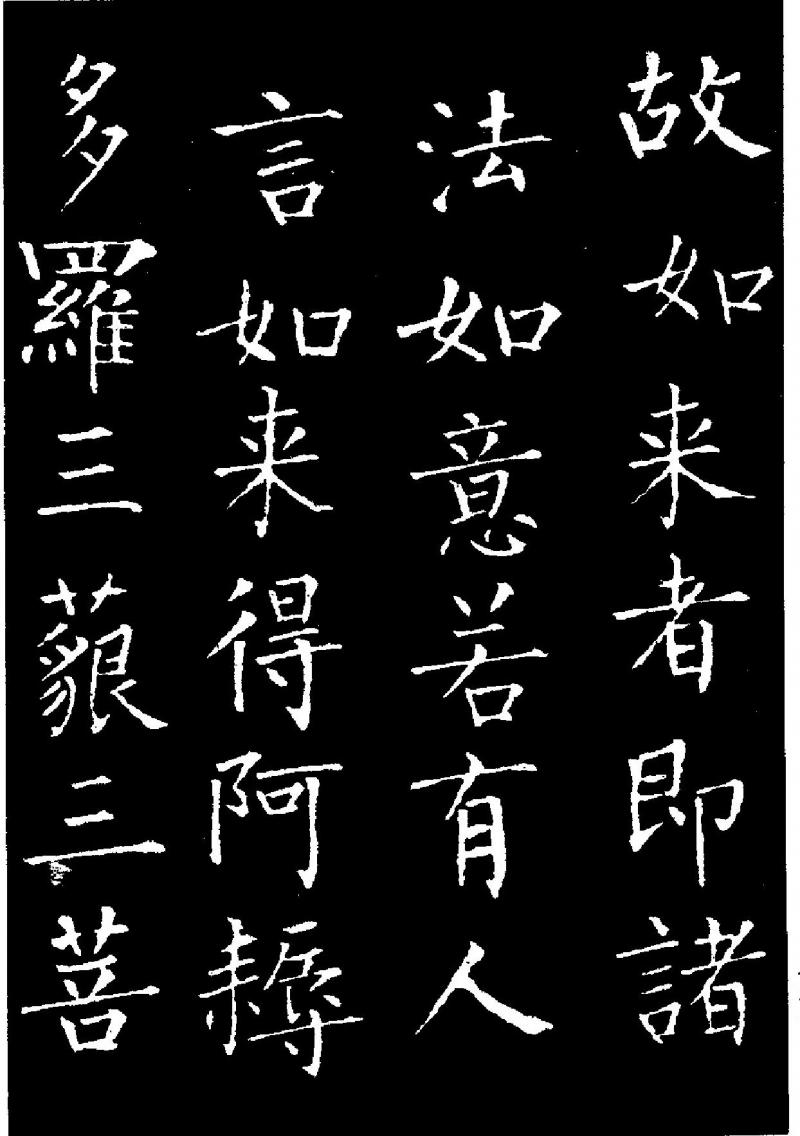 故如来者即諸
法如意若有人
言如来得阿耨
多羅三藐三菩